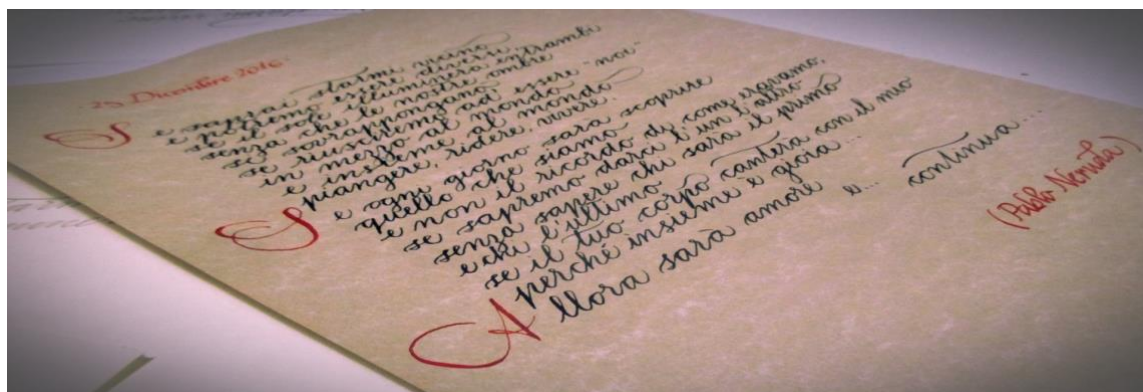 25 Dicembre 2016
Se saprai starmi vicino
e potremo essere diversi,
se il sole illuminerà entrambi
senza che le nostre ombre
si sovrappongano
se riusciremo ad essere "noi"
in mezzo al mondo
e insieme al mondo
piangere, ridere, vivere.
Se ogni giorno sarà scoprire
quello che siamo
e non il ricordo di come eravamo,
se sapremo darci l'un l'altro
senza sapere chi sarà il primo
e chi l'ultimo
se il tuo corpo canterà con il mio
perché insieme è gioia...
Allora sarà amore e... continua...
(Pablo Neruda)